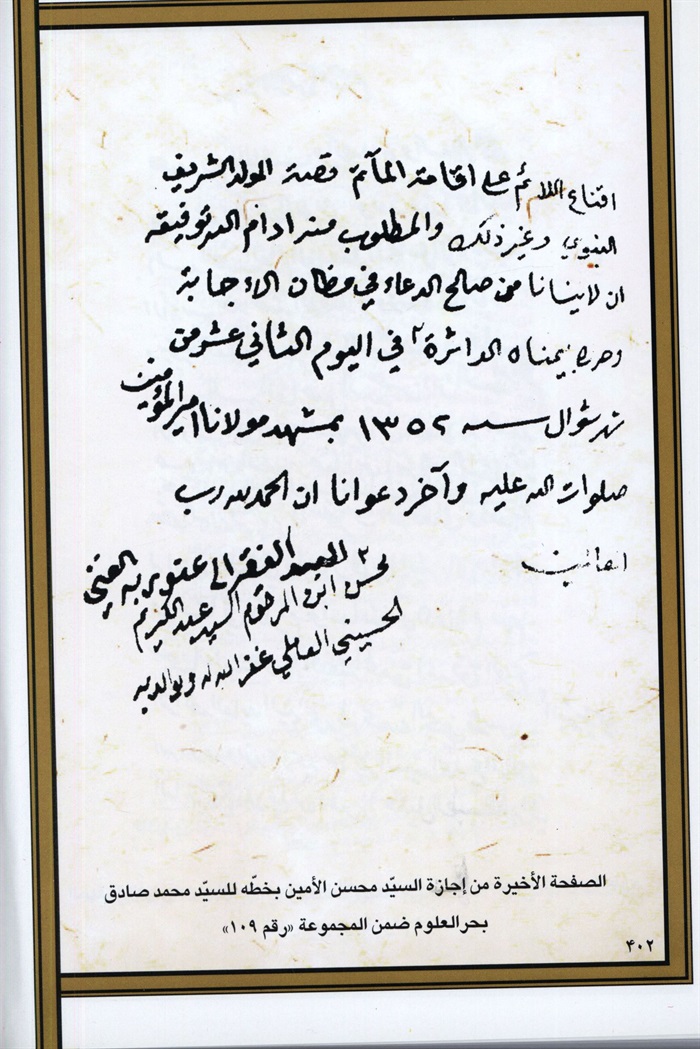 اقناع اللائم على اقامة المآتم وقصة المولد الشريف
النبوي وغير ذلك والمطلوب منه ادام الله توفيقه
ان لا ينسانا من صالح الدعاء في مظان الاجابة
وحرره بيمناه الداثرة في اليوم الثاني عشر من
شهر شوال سنه ١٣٥٢ بمشهد مولانا امير المؤمنين
صلوات الله عليه وآخر دعوانا ان الحمد لله رب
العالمين
العبد الفقير الى عفو ربه الغني
محسن ابن المرحوم السيد عبد الكريم
الحسيني العاملي غفر الله له ولوالديه
الصفحة الأخيرة من إجازة السيّد محسن الأمين بخطّه للسيّد محمد صادق
بحر العلوم ضمن المجموعة «رقم ١٠٩»
۴۰۲